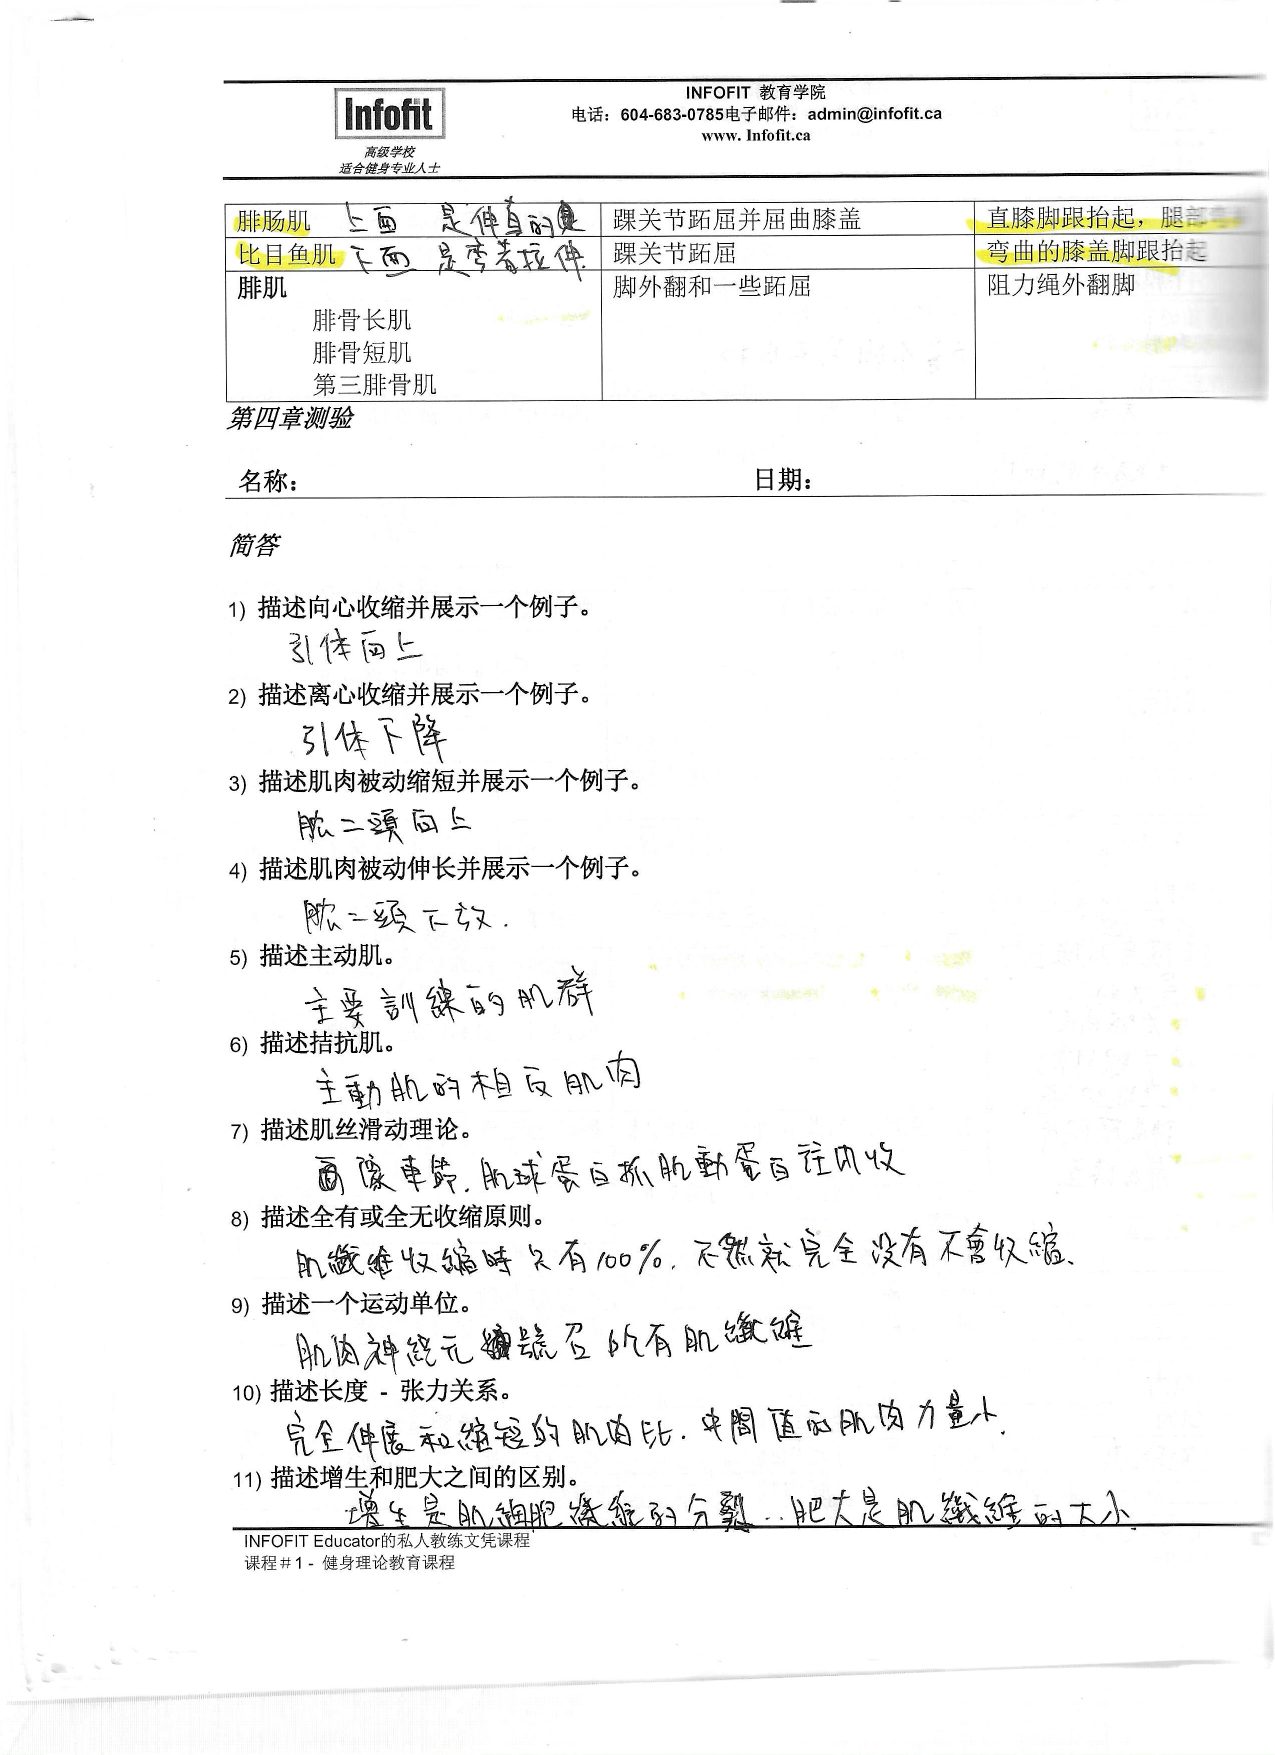 INFOFIT 教育学院
Infofit
电话：604-683-0785电子邮件：admin@infofit.ca
www. Infofit.ca
高级学校
适合健身专业人士
腓肠肌 上面 是伸直的 踝关节跖屈并屈曲膝盖 直膝脚跟抬起，腿部
比目鱼肌 下面 是弯着拉伸. 踝关节跖屈 弯曲的膝盖脚跟抬起
腓肌 脚外翻和一些跖屈 阻力绳外翻脚
腓骨长肌
腓骨短肌
第三腓骨肌
第四章测验
名称： 日期：
简答
1) 描述向心收缩并展示一个例子。
引体向上
2) 描述离心收缩并展示一个例子。
引体下降
3) 描述肌肉被动缩短并展示一个例子。
肱二頭向上
4) 描述肌肉被动伸长并展示一个例子。
肱二頭下放.
5) 描述主动肌。
主要訓練的肌群
6) 描述拮抗肌。
主動肌的相反肌肉
7) 描述肌丝滑动理论。
肌球蛋白抓肌動蛋白往內收
8) 描述全有或全无收缩原则。
肌纖維收縮時只有100%. 不然就完全没有不會收縮.
9) 描述一个运动单位。
肌肉神經元號召所有肌纖維
10) 描述长度 - 张力关系。
完全伸展和縮短的肌肉比. 中間值的肌肉力量小.
11) 描述增生和肥大之间的区别。
增生是肌細胞纖維的分裂.. 肥大是肌纖維的大小
INFOFIT Educator的私人教练文凭课程
课程＃1 - 健身理论教育课程